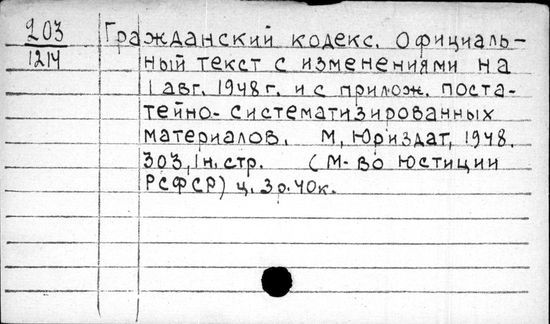 203
1214
Гражданский кодекс. Официаль-
ный текст с изменениями на
1 авг. 1948 г. и с прилож. поста-
тейно-систематизированных
материалов. М, Юриздат, 1948.
303, 1 н. стр. (М-во юстиции
РСФСР) ц. 3 р. 40 к.